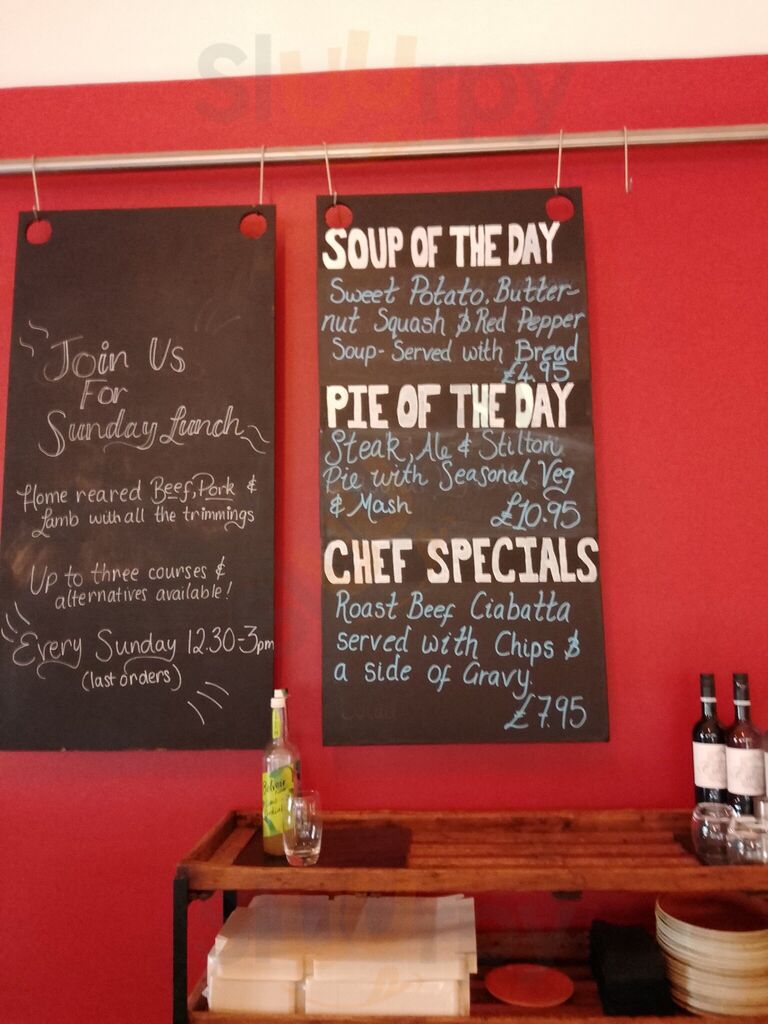 Sluurpy
Join Us
For
Sunday Lunch
Home reared Beef, Pork &
Lamb with all the trimmings
Up to three courses &
alternatives available!
Every Sunday 12.30-3pm
(last orders)
SOUP OF THE DAY
Sweet Potato, Butter-
nut Squash & Red Pepper
Soup- Served with Bread
£4.95
PIE OF THE DAY
Steak, Ale & Stilton
Pie with Seasonal Veg
& Mash £10.95
CHEF SPECIALS
Roast Beef Ciabatta
served with Chips &
a side of Gravy.
£7.95
Belvoir